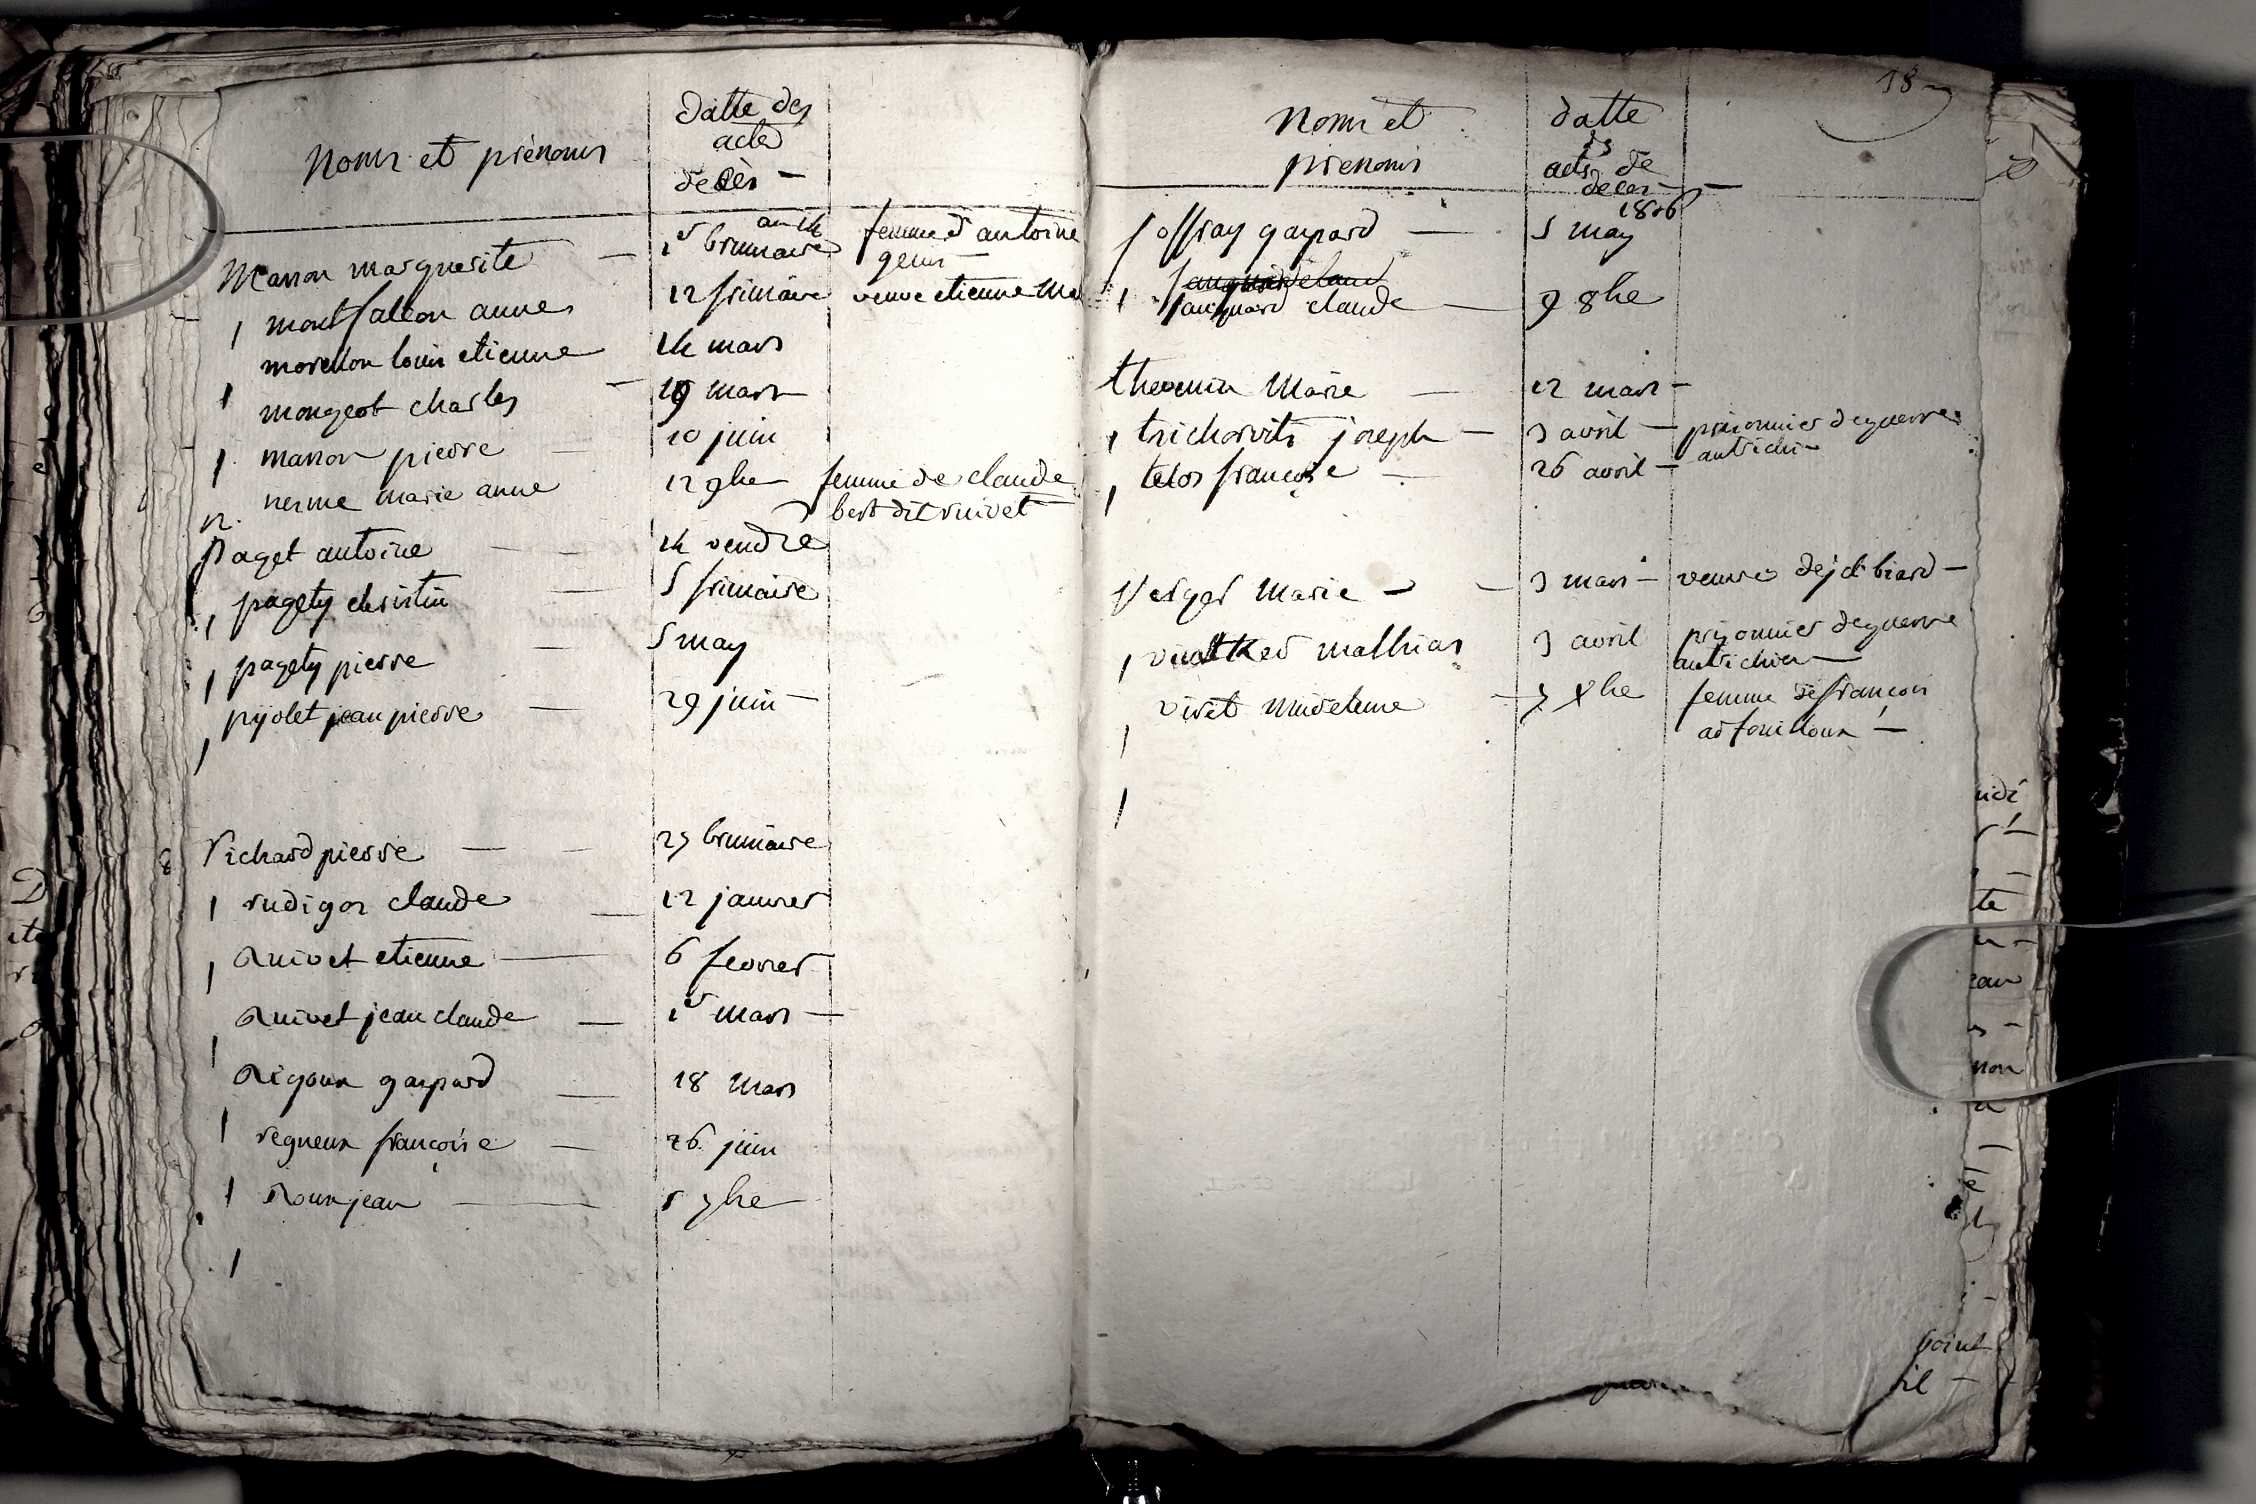 Noms et prénoms
datte des
actes
decès —
an 14
Manon marguerite — 1er brumaire femme d'antoine
genin —
1 montfalcon anne 12 frimaire veuve etienne
morellon louis etienne 14 mars
1 mongeot charles — 19 mars
1 manon pierre — 10 juin
nerme marie anne 12 9bre femme de claude
best dit ruivet
Paget antoine — 14 vendre
1 pagety christin — 5 frimaire
1 pagety pierre — 5 may
1 pijolet jean pierre — 29 juin —
Richard pierre — 27 brumaire
1 rudigoz claude — 12 janvier
1 Ruivet etienne — 6 fevrier
1 Ruivet jean claude — 1er mars —
Rigoux gaspard — 18 mars
1 regneux françoise — 26 juin
1 Roux jean — 5 7bre
1
18
Noms et
prenoms
datte
des
acts de
deces —
1806
Joffray gaspard — 5 may
1 janquard claude — 9 8bre
thevenin Marie — 12 mars —
1 trichorvits joseph — 3 avril — prisonnier de guerre
autrichi —
1 telos françoise — 26 avril —
Verger Marie — 3 mars — veuve de j ct biard —
1 mathias 3 avril prisonnier de guerre
autrichien —
vivet Madeleine — 7 Xbre femme de françois
1
1